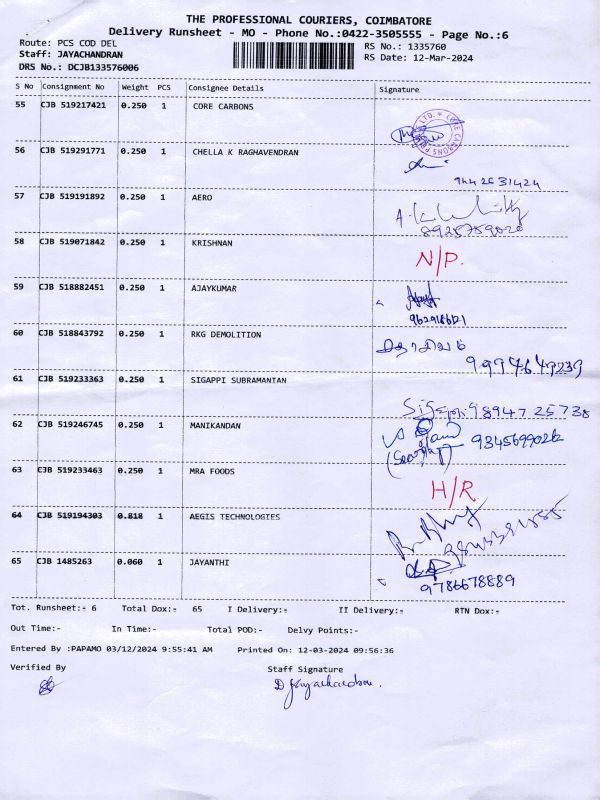 THE PROFESSIONAL COURIERS, COIMBATORE
Delivery Runsheet - MO - Phone No.:0422-3505555 - Page No.:6
Route: PCS COD DEL
Staff: JAYACHANDRAN
DRS No.: DCJB133576006
RS No.: 1335760
RS Date: 12-Mar-2024
S No Consignment No Weight PCS Consignee Details Signature
55 CJB 519217421 0.250 1 CORE CARBONS
56 CJB 519291771 0.250 1 CHELLA K RAGHAVENDRAN
9442631424
57 CJB 519191892 0.250 1 AERO
8925759020
58 CJB 519071842 0.250 1 KRISHNAN N/P.
59 CJB 518882451 0.250 1 AJAYKUMAR
60 CJB 518843792 0.250 1 RKG DEMOLITION
61 CJB 519233363 0.250 1 SIGAPPI SUBRAMANTAN
98947 25738
62 CJB 519246745 0.250 1 MANIKANDAN
63 CJB 519233463 0.250 1 MRA FOODS H/R
64 CJB 519194303 0.818 1 AEGIS TECHNOLOGIES
65 CJB 1485263 0.060 1 JAYANTHI
9786678889
Tot. Runsheet:- 6 Total Dox:- 65 I Delivery:- II Delivery:- RTN Dox:-
Out Time:- In Time:- Total POD:- Delvy Points:-
Entered By :PAPAMO 03/12/2024 9:55:41 AM Printed On: 12-03-2024 09:56:36
Verified By Staff Signature